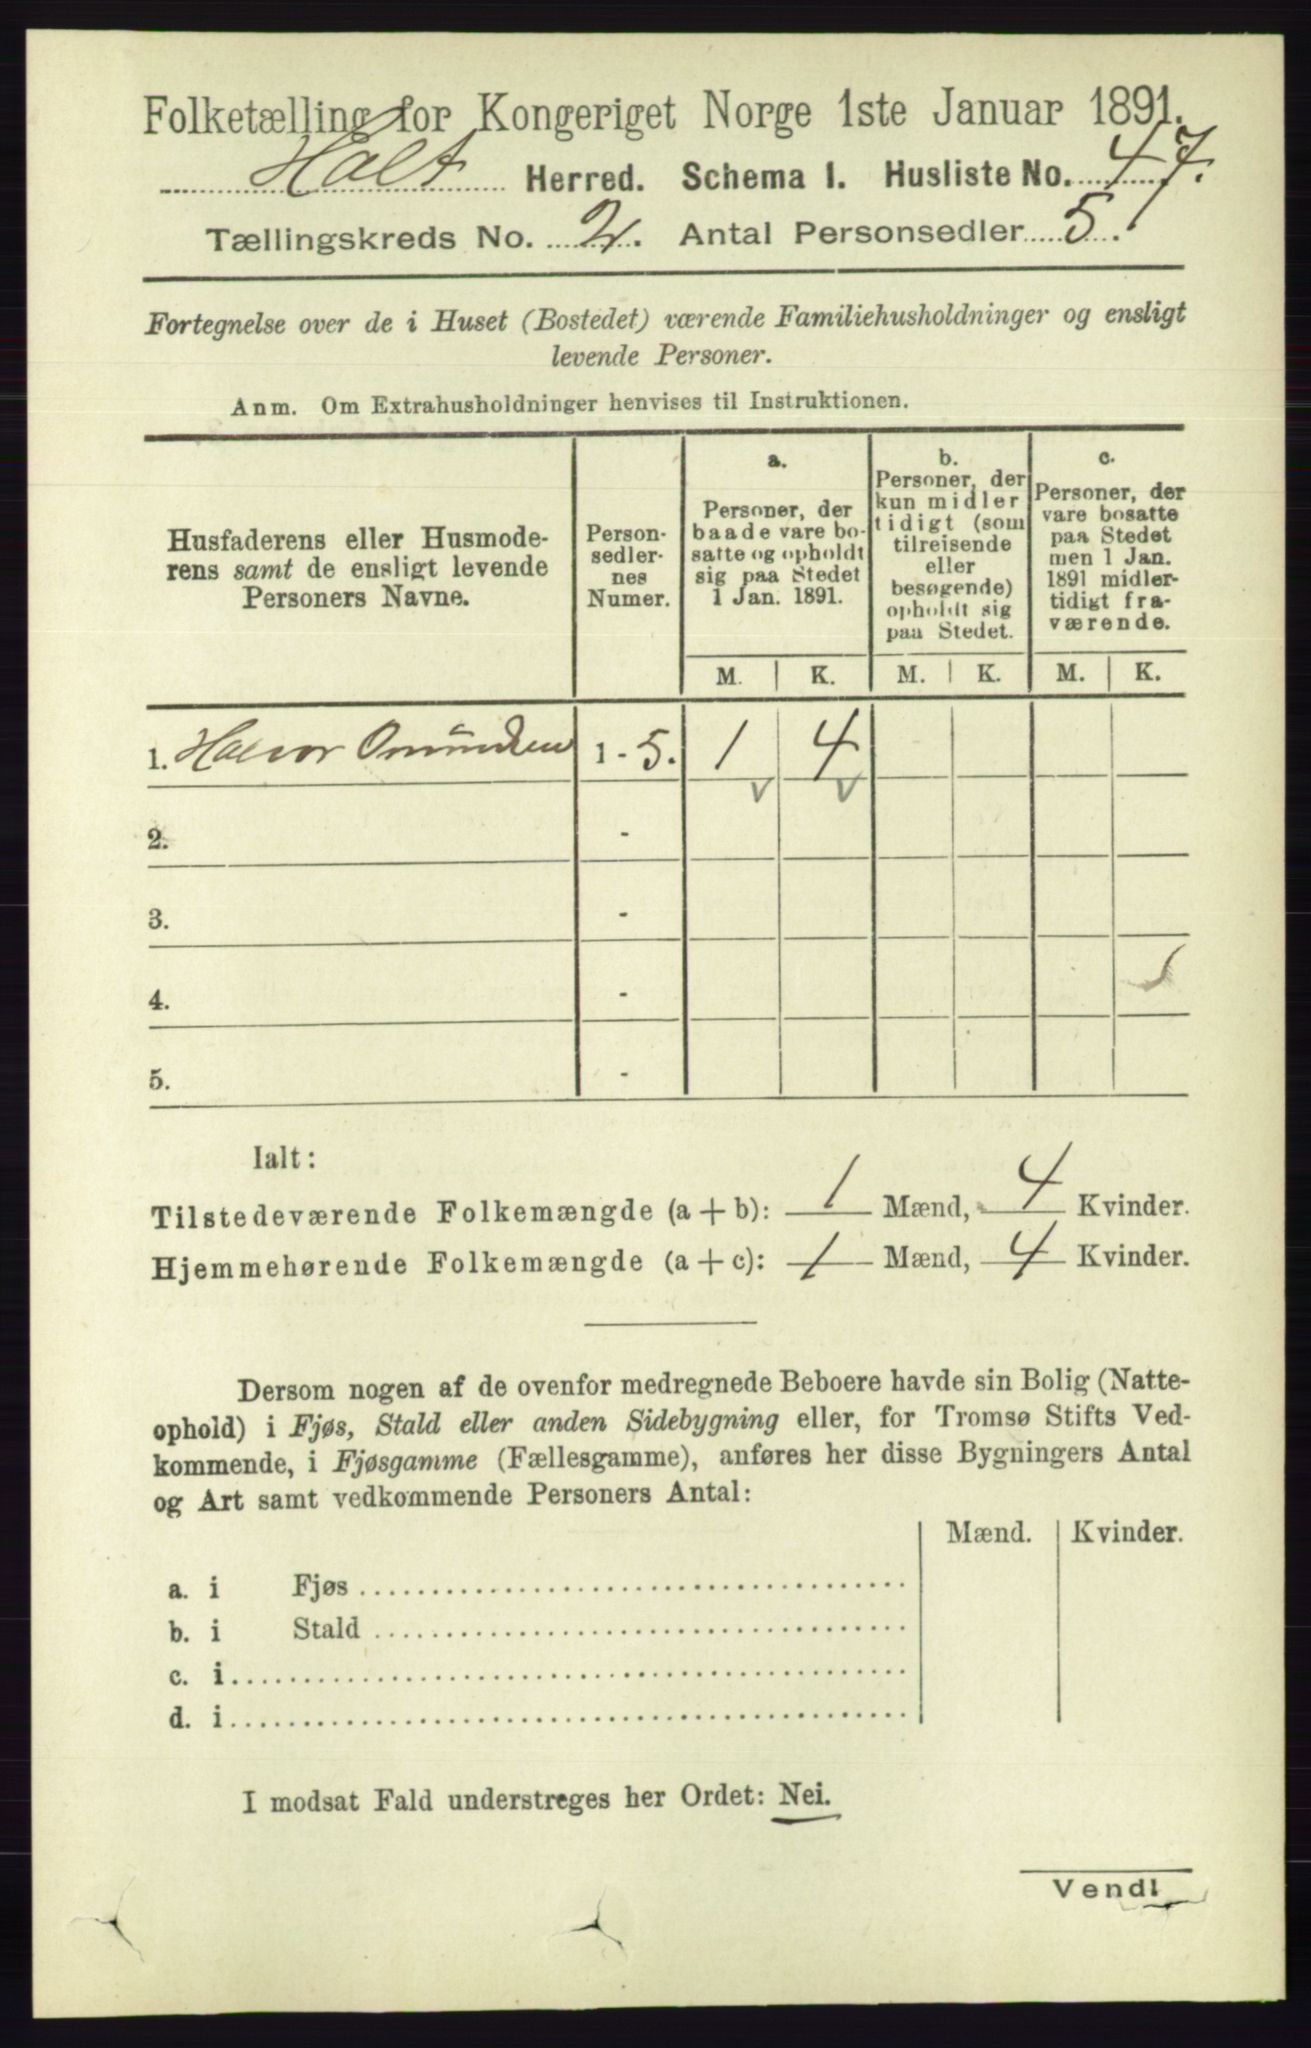 Folketælling for Kongeriget Norge 1ste Januar 1891.
Holt Herred. Schema 1. Husliste No. 47.
Tællingskreds No. 2. Antal Personsedler 5.
Fortegnelse over de i Huset (Bostedet) værende Familiehusholdninger og ensligt
levende Personer.
Anm. Om Extrahusholdninger henvises til Instruktionen.
Husfaderens eller Husmode-
rens samt de ensligt levende
Personers Navne.
Person-
sedler-
nes
Numer.
a.
Personer, der
baade vare bo-
satte og opholdt
sig paa Stedet
1 Jan. 1891.
b.
Personer, der
kun midler
tidigt (som
tilreisende
eller
besøgende)
opholdt sig
paa Stedet.
c.
Personer, der
vare bosatte
paa Stedet
men 1 Jan.
1891 midler-
tidigt fra-
værende.
M. K. M. K. M. K.
1. Halvor Omundsen 1 - 5. 1 4
2. -
3. -
4. -
5. -
Ialt:
Tilstedeværende Folkemængde (a + b): 1 Mænd, 4 Kvinder.
Hjemmehørende Folkemængde (a + c): 1 Mænd, 4 Kvinder.
Dersom nogen af de ovenfor medregnede Beboere havde sin Bolig (Natte-
ophold) i Fjøs, Stald eller anden Sidebygning eller, for Tromsø Stifts Ved-
kommende, i Fjøsgamme (Fællesgamme), anføres her disse Bygningers Antal
og Art samt vedkommende Personers Antal:
Mænd. Kvinder.
a. i Fjøs
b. i Stald
c. i
d. i
I modsat Fald understreges her Ordet: Nei.
Vend!